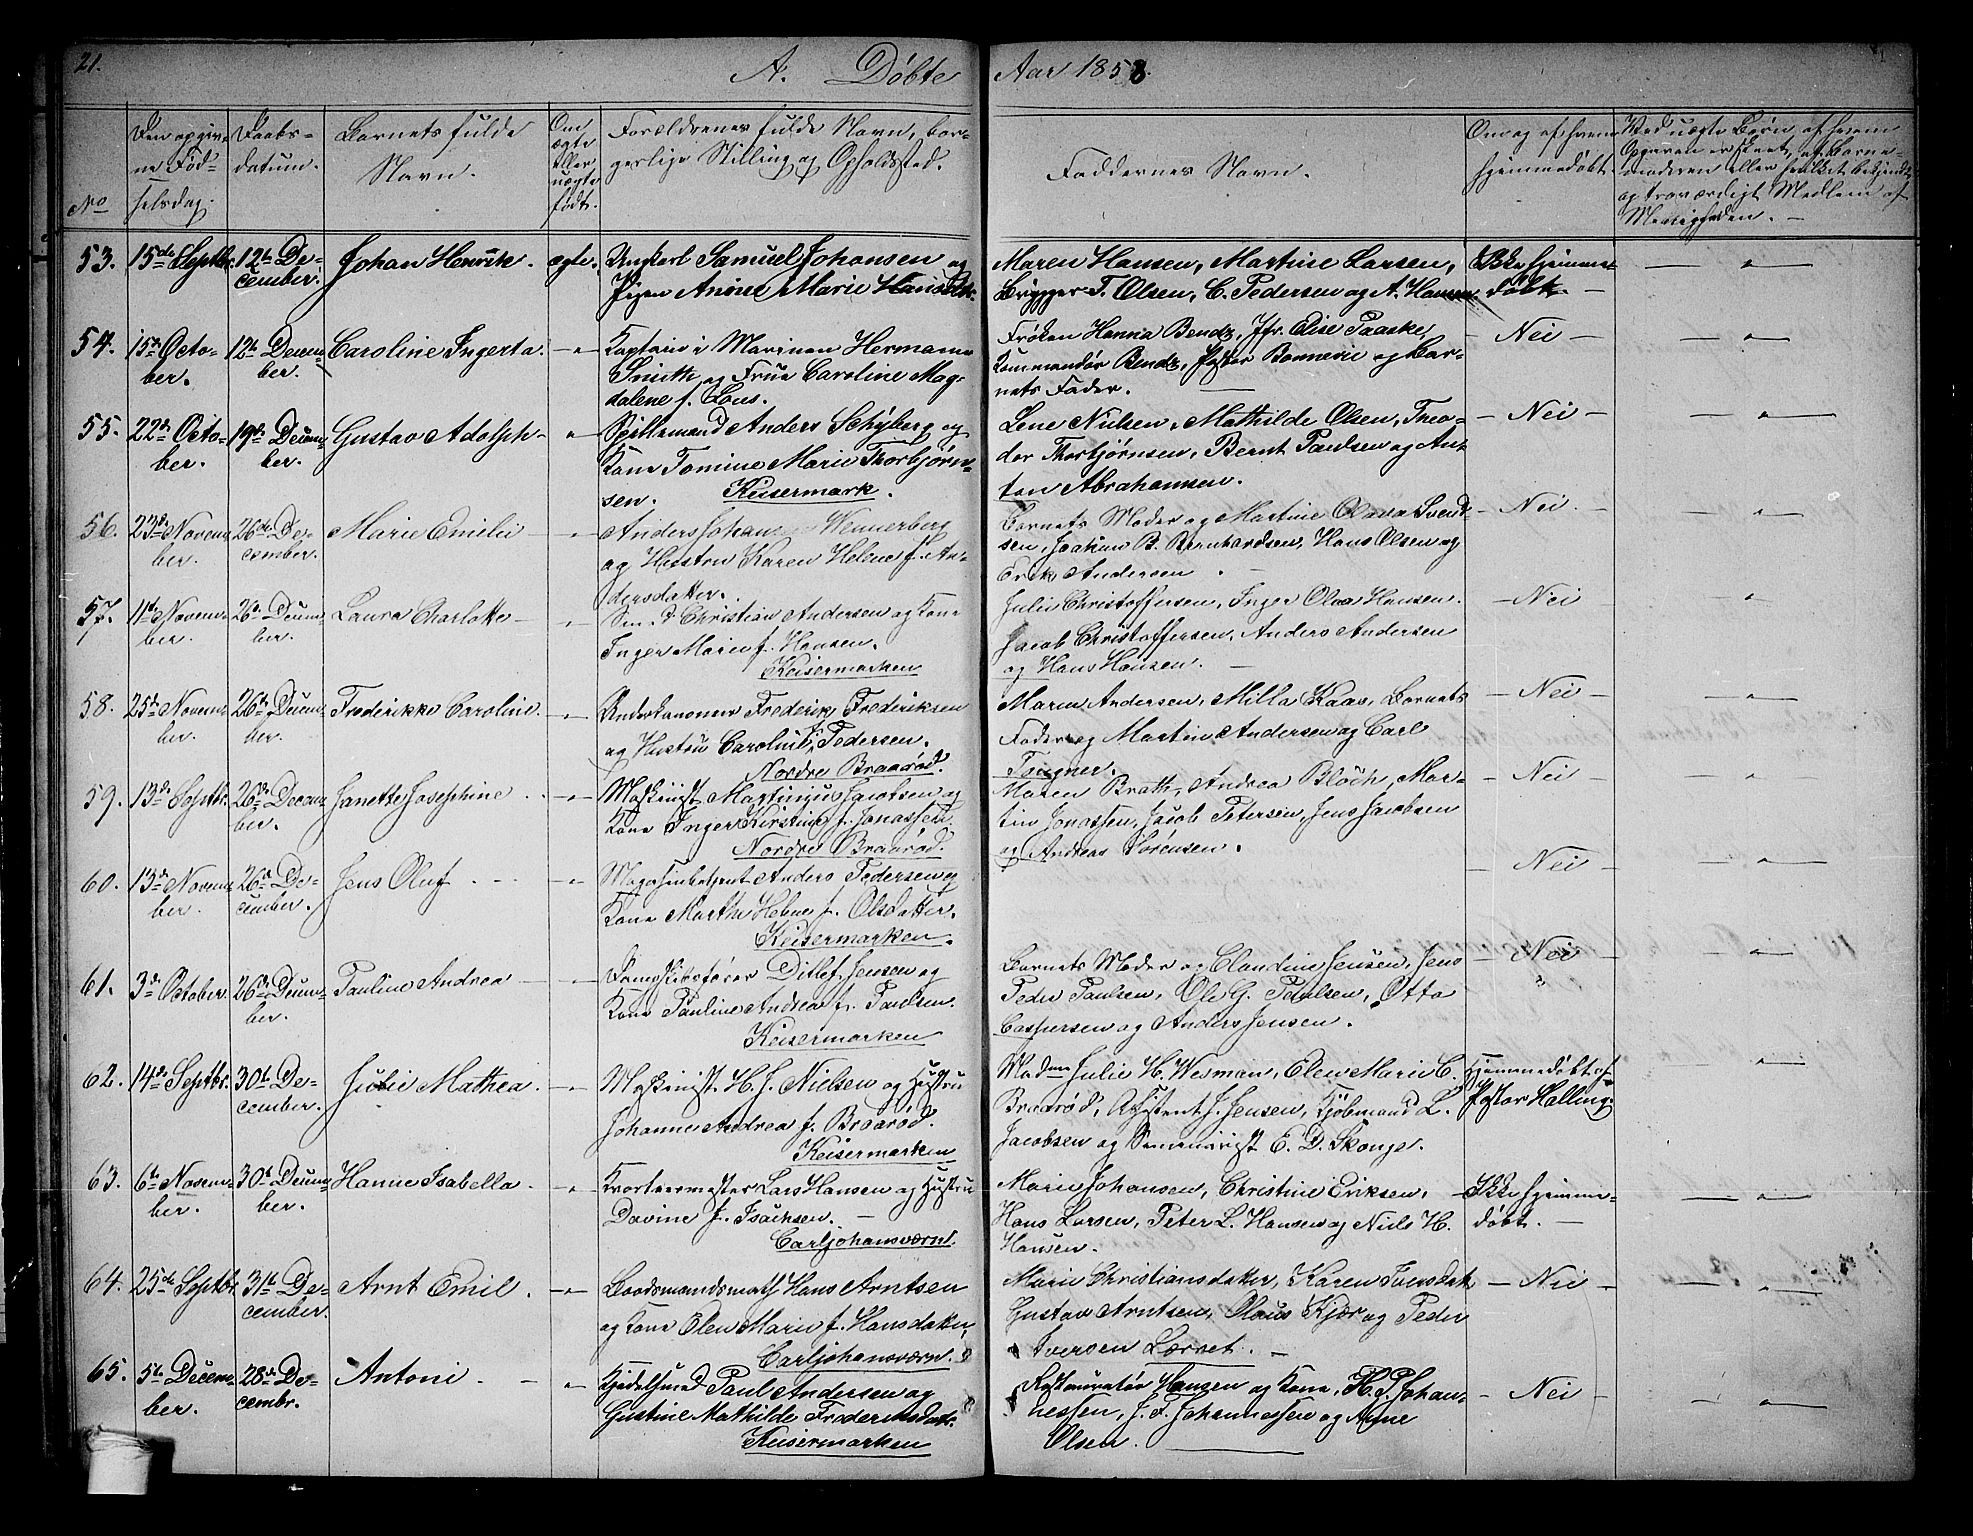 21.
A. Døbte
Aar 1858.
No
Den opgiv-
ne Fød-
selsdag.
Daabs-
datum.
Barnets fulde
Navn.
Om
ægte
eller
uægte
født.
Forældrenes fulde Navn, bor-
gerlige Stilling og Opholdssted.
Faddernes Navn.
Om og af hvem
hjemmedøbt.
Ved uægte Børn, af hvem
Opgaven er skeet, af Barne-
moderen eller hvilket bekjendt
og troværdigt Medlem af
Menigheden. –
53. 15de Septbr. 12te De-
cember.
Johan Henrik. ægte.
Ungkarl Samuel Johansen og
Pigen Anine Marie
Maren Hansen, Martine Larsen,
Brygger T. Olsen, C. Pedersen og A. Hansen.
Ikke hjemme-
døbt. –
54. 15de Octo-
ber. 12te Decem-
ber.
Caroline Ingerta. – " –
Kaptain i Marinen Hermann
Smith og Frue Caroline Mag-
dalene f. Lous.
Frøken Hanna Bendz, Jfr. Elise Paaske,
Kommandør Bendz, Pastor Bonnevie og Bar-
nets Fader. –
– Nei –
55. 22de Octo-
ber. 19de Decem-
ber.
Gustav Adolph – "
Spillemand Anders Schyberg og
Kone Tomine Marie Thorbjørn-
sen. Keisermark.
Lene Nielsen, Mathilde Olsen, Theo-
dor Thorbjørnsen, Bernt Paulsen og An-
ton Abrahamsen.
– Nei –
56. 23de Novem-
ber. 26de De-
cember.
Marie Emilie – " –
Anders Johan Wennerberg
og Hustru Karen Helene f. An-
dersdatter.
Barnets Moder og Martine Olava Svend-
sen, Joakim B. Bernhardsen, Hans Olsen og
Erik Andersen.
– Nei. –
57. 11te Novem-
ber. 26de Decem-
ber.
Laura Charlotte – " –
Christian Andersen og Kone
Inger Marie f. Hansen.
Keisermarken
Julie Christoffersen, Inger Olea Hansen.
Jacob Christoffersen, Anders Andersen
og Hans Hansen. –
– Nei
58. 25de Novem-
ber. 26de Decem-
ber.
Frederikke Caroline. – " –
Underkanoneer Frederik Frederiksen
og Hustru Caroline f. Pedersen.
Nordre Braarød.
Maren Andersen, Milla Kaas, Barnets
Fader og Martin Andersen og Carl
– Nei –
59. 13de Septbr. 26de Decem-
ber.
Janette Josephine – " –
Maskinist Martinius Jacobsen og
Kone Inger Kirstine f. Jonassen
Nordre Braarød.
Maren Brath, Andrea Bloch, Mar-
tin Jonassen, Jacob Petersen, Jens Jacobsen
og Andreas Sørensen.
– Nei –
60. 13de Novem-
ber. 26de De-
cember.
Jens Oluf – " –
Magasinbetjent Anders Pedersen og
Kone Marthe Helene f. Olsdatter.
Keisermarken.
– Nei –
61. 3de October. 26de Decem-
ber.
Pauline Andrea – " –
Dampskibsfører Ditlef Jensen og
Kone Pauline Andrea f. Paulsen.
Keisermarken
Barnets Moder og Claudine Jensen, Jens
Peder Paulsen, Ole G. Paulsen, Otto
Caspersen og Anders Jensen.
– Nei
62. 14de Septbr. 30te De-
cember.
Julie Mathea. – " –
Maskinist H. J. Nielsen og Hustru
Johanne Andrea f. Braarød.
Keisermarken
Madme Julie H. Wesman, Elen Marie C.
Braarød, Assistent J. Jensen, Kjøbmand L.
Jacobsen og Seminarist E. D. Skonge.
Hjemmedøbt af
Pastor Halling.
63. 6te Novem-
ber. 30te Decem-
ber.
Hanne Isabella. – " –
Kvarteermester Lars Hansen og Hustru
Davine f. Isachsen. –
Carljohansværn.
Marie Johansen, Christine Eriksen,
Hans Larsen, Peter L. Hansen og Niels H.
Hansen.
Ikke hjemme-
døbt. –
64. 25de Septbr. 31te De-
cember.
Arnt Emil. – " –
Baadsmandsmath Hans Arntsen
og Kone Elen Marie f. Hansdatter,
Carljohansværn.
Marie Christiansdatter, Karen Iversdat.
Gustav Arntsen, Olaus Kjær og Peder
Iversen Lærvet. –
– Nei –
65. 5te Decem-
ber. 28de De-
cembr.
Antoni – " –
Kjedelsmed Paul Andersen og
Gustine Mathilde Frederiksdatr.
Keisermarken
Restauratør Hansen og Kone, H. P. Johan-
nessen, J. F. Johannessen og Anne
Olsen.
– Nei –